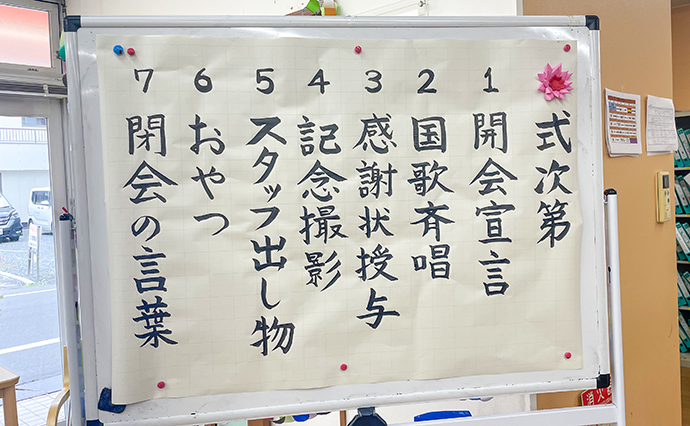 式次第
1 開会宣言
2 国歌斉唱
3 感謝状授与
4 記念撮影
5 スタッフ出し物
6 おやつ
7 閉会の言葉